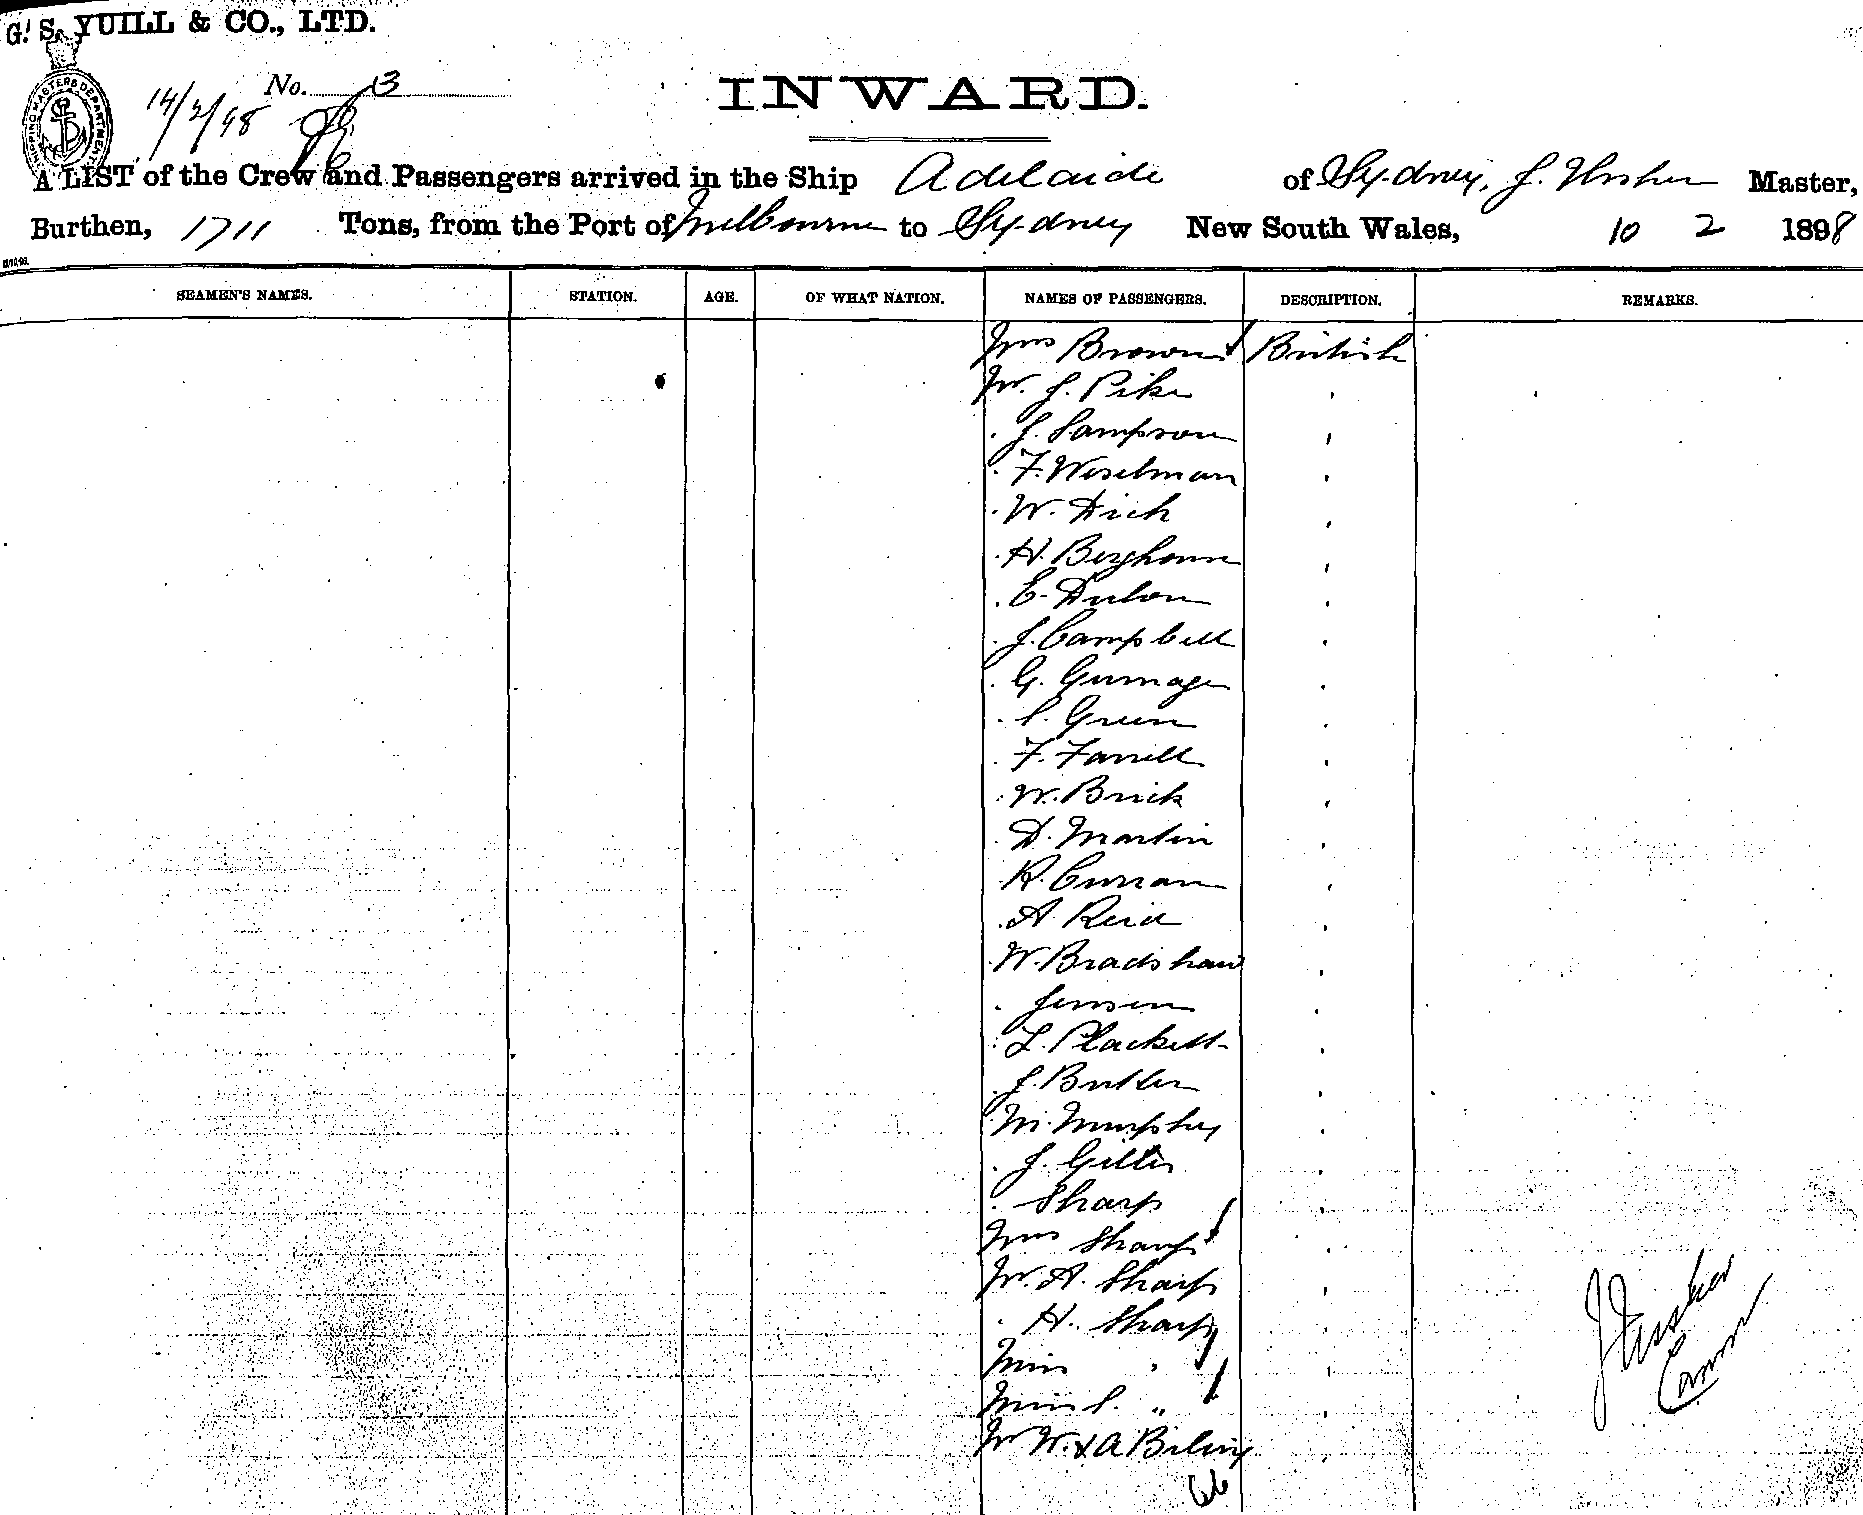 G. S. YUILL & CO., LTD.
SHIPPING MASTERS DEPARTMENT
14/2/98 No. 13
INWARD.
A LIST of the Crew and Passengers arrived in the Ship Adelaide of Sydney, J. Master,
Burthen, 1711 Tons, from the Port of Melbourne to Sydney New South Wales, 10 2 1898
SEAMEN'S NAMES. STATION. AGE. OF WHAT NATION. NAMES OF PASSENGERS. DESCRIPTION. REMARKS.
Mrs Brown British
Mr. J. Pike
. J. Sampson
. F. Weselman
. W. Dick
. H. Berghown
. E. Dulon
. J. Campbell
. G. Gumage
. Green
. F. Farrell
. W. Brick
. D. Martin
. R. Curran
. A. Reid
. W. Bradshaw
. Jensen
. L. Plackett
. J. Butler
. M. Murphy
. J. Gillis
. Sharp
Mrs Sharp
Mr. A. Sharp
. H. Sharp
Miss "
Miss "
Mr W. & A
66